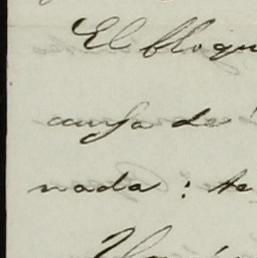 El bloqu
causa de
nada: te